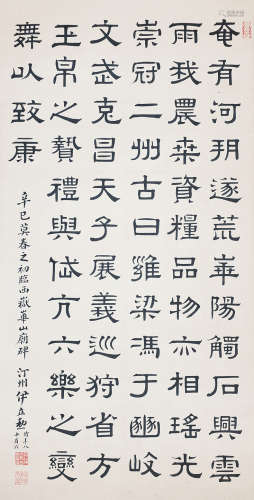 奄有河朔遂荒崋陽觸石興雲
雨我農桒資糧品物亦相瑤光
崇冠二州古曰雍梁馮于豳岐
文武克昌天子展義巡狩省方
王帛之贄禮與岱亢六樂之變
舞以致康
辛巳莫春之初臨西嶽華山廟碑 汀州伊立勳時年八十有六